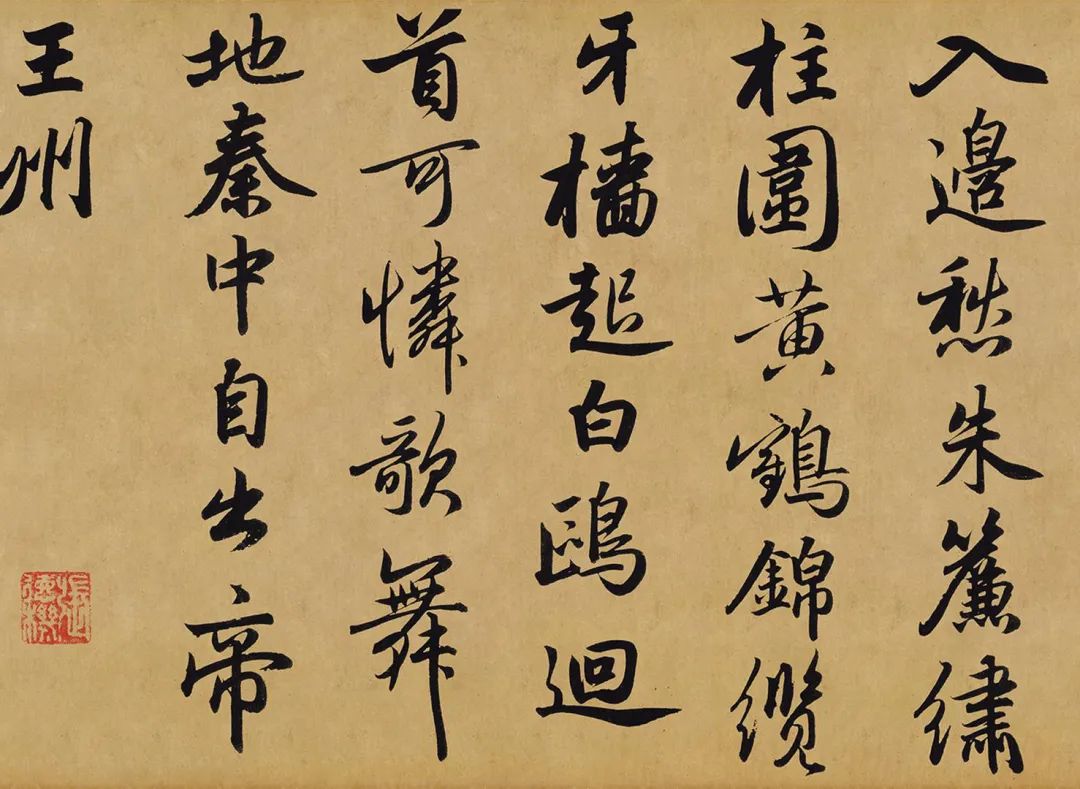 入邊愁朱簾繡
柱圍黃鶴錦纜
牙檣起白鷗迴
首可憐歌舞
地秦中自古帝
王州